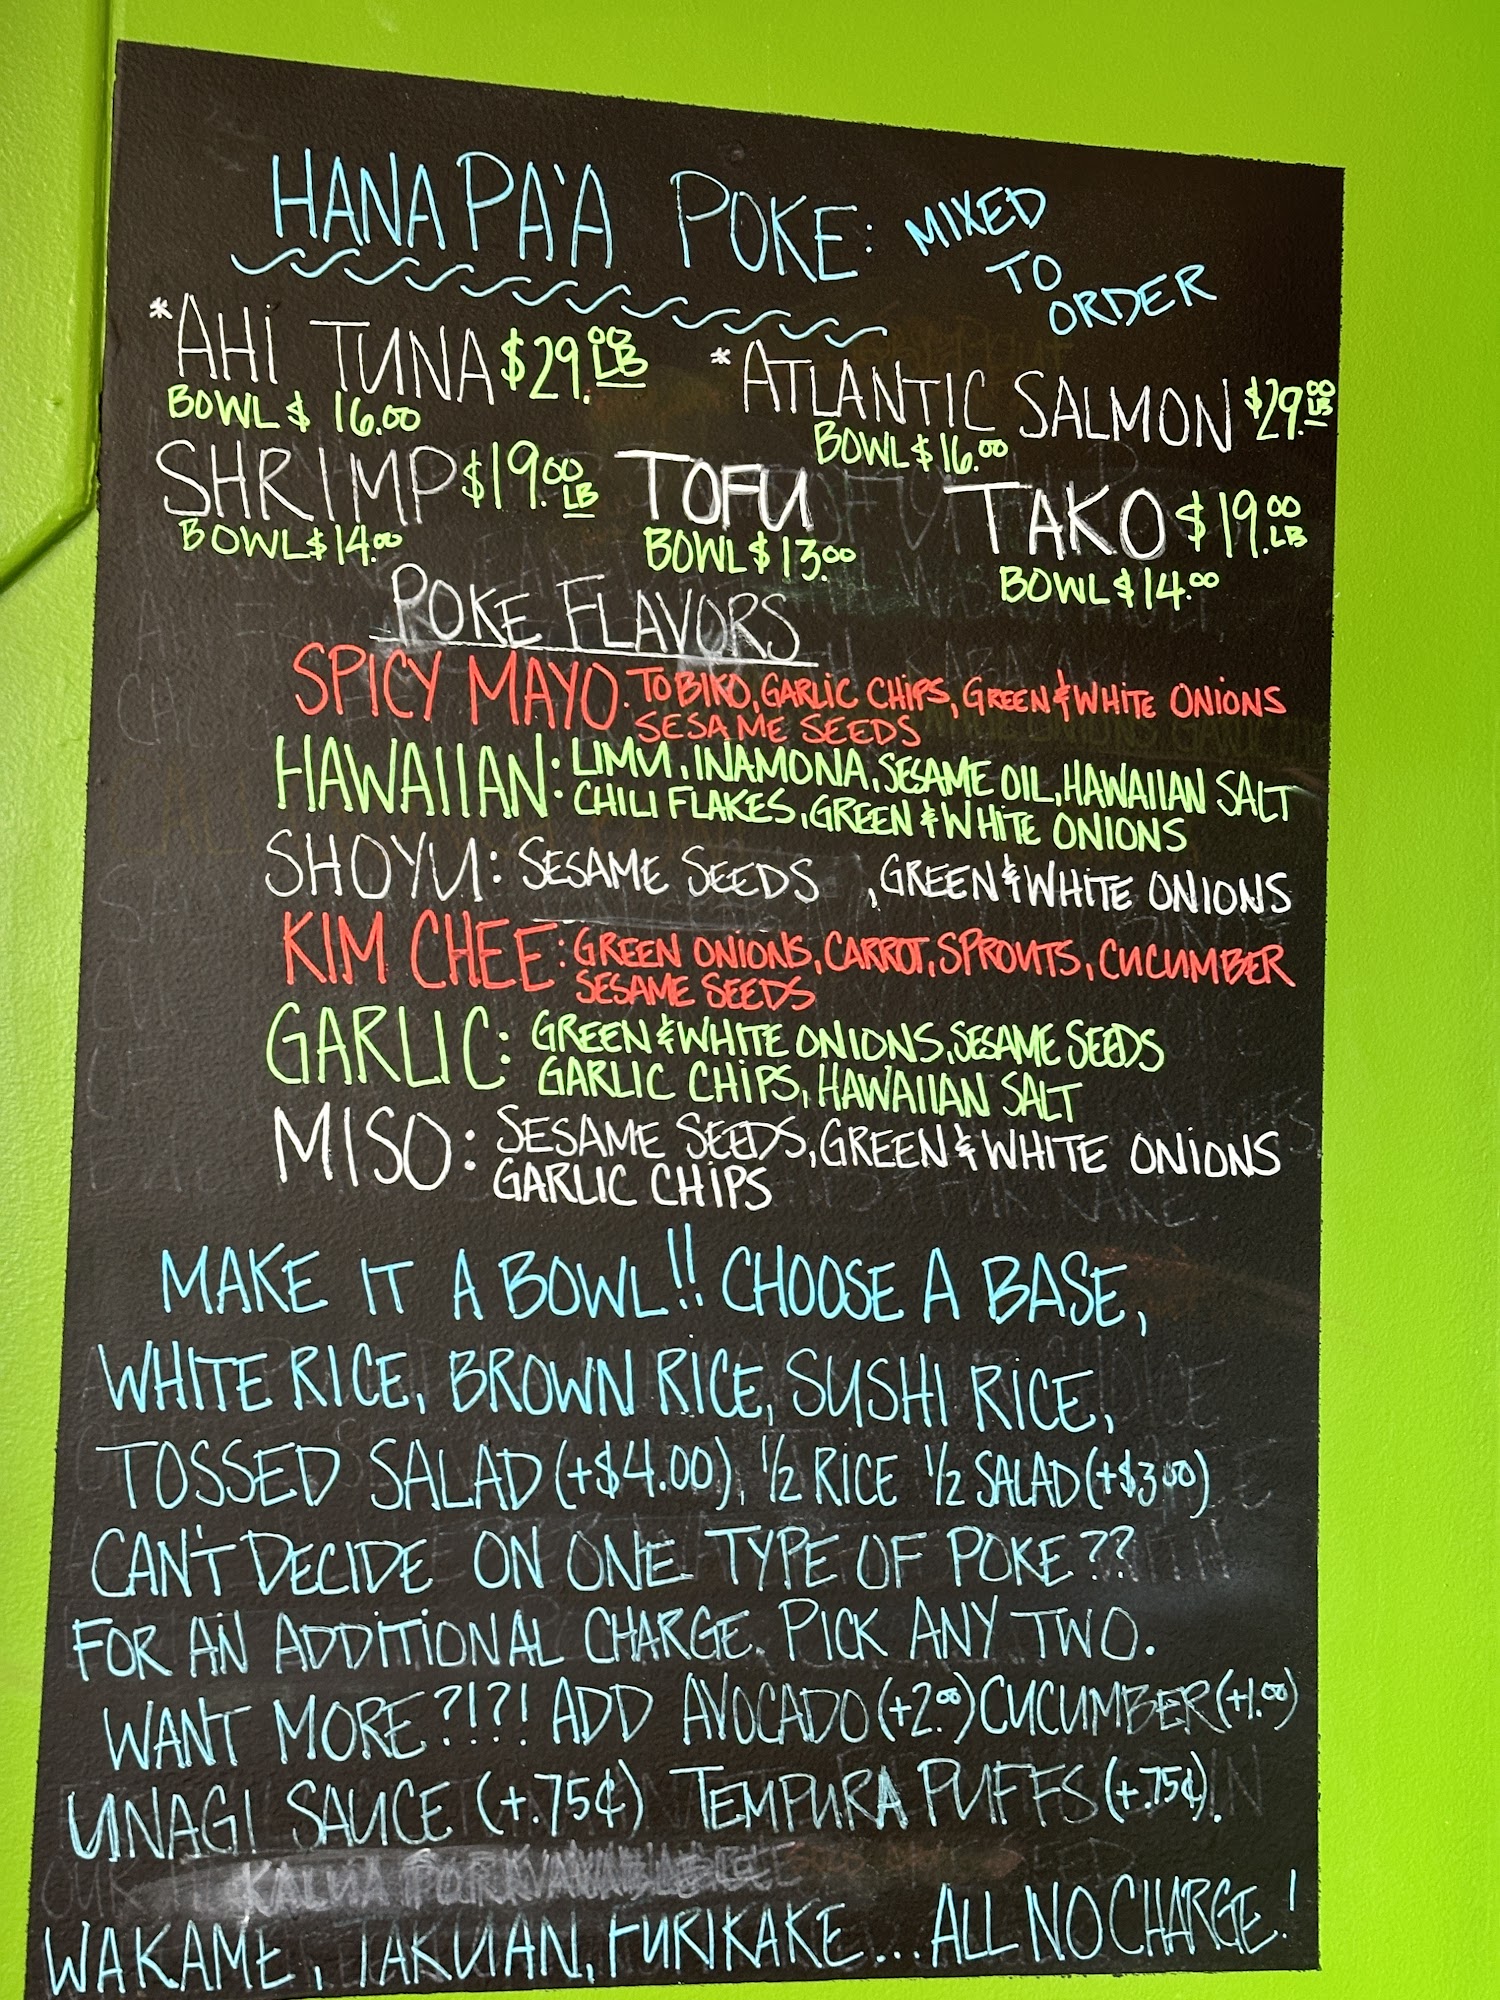 HANA PA'A POKE: MIXED TO ORDER
*AHi TUNA $29.00 LB *ATLANTIC SALMON $29.00 LB
BOWL $ 16.00 BOWL $ 16.00
SHRIMP $19.00 LB TOFU TAKO $19.00 LB
BOWL $14.00 BOWL $13.00 BOWL $14.00
POKE FLAVORS
SPICY MAYO: TOBIKO, GARLIC CHIPS, GREEN & WHITE ONIONS
SESAME SEEDS
HAWAIIAN: LIMU, INAMONA, SESAME OIL, HAWAIIAN SALT
CHILI FLAKES, GREEN & WHITE ONIONS
SHOYU: SESAME SEEDS , GREEN & WHITE ONIONS
KIM CHEE: GREEN ONIONS, CARROT, SPROUTS, CUCUMBER
SESAME SEEDS
GARLIC: GREEN & WHITE ONIONS, SESAME SEEDS
GARLIC CHIPS, HAWAIIAN SALT
MISO: SESAME SEEDS, GREEN & WHITE ONIONS
GARLIC CHIPS
MAKE IT A BOWL!! CHOOSE A BASE,
WHITE RICE, BROWN RICE, SUSHI RICE,
TOSSED SALAD (+$4.00), 1/2 RICE 1/2 SALAD (+$3.00)
CAN'T DECIDE ON ONE TYPE OF POKE??
FOR AN ADDITIONAL CHARGE, PICK ANY TWO.
WANT MORE?!?! ADD AVOCADO (+2.00) CUCUMBER (+1.00)
UNAGI SAUCE (+.75¢) TEMPURA PUFFS (+.75¢).
KALUA PORK
WAKAME, TAKUAN, FURIKAKE... ALL NO CHARGE!